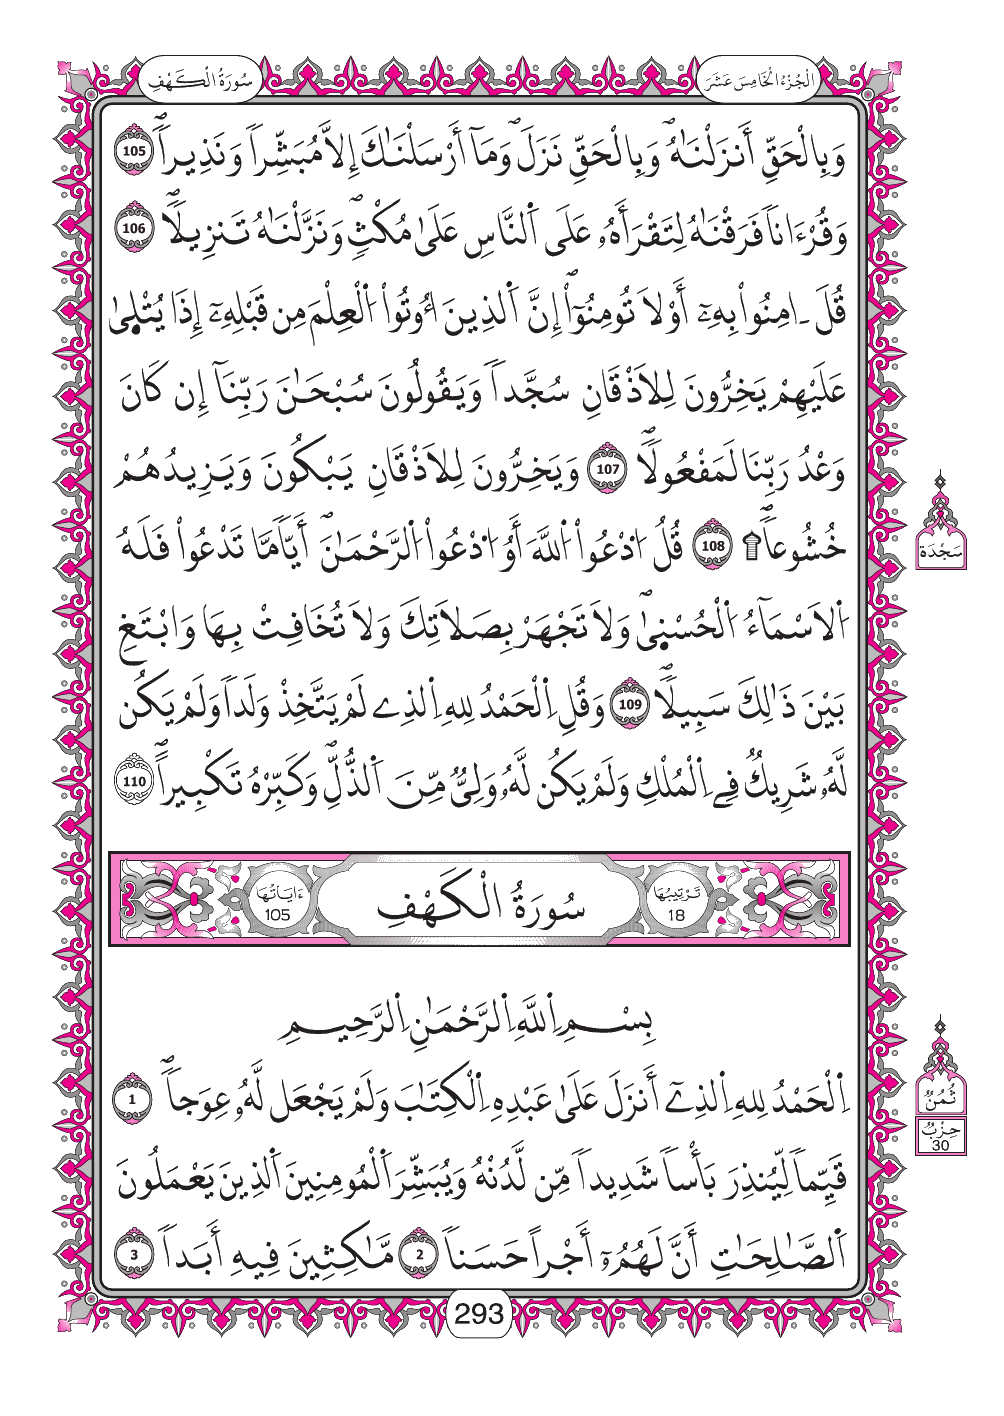 سُورَةُ الْكَهْفِ
الْجُزْءُ الْخَامِسَ عَشَرَ
وَبِالْحَقِّ أَنزَلْنَٰهُۖ وَبِالْحَقِّ نَزَلَۖ وَمَآ أَرْسَلْنَٰكَ إِلَّا مُبَشِّراٗ وَنَذِيراٗۖ 105
وَقُرْءَاناٗ فَرَقْنَٰهُ لِتَقْرَأَهُۥ عَلَى اَ۬لنَّاسِ عَلَىٰ مُكْثٖۖ وَنَزَّلْنَٰهُ تَنزِيلاٗۖ 106
قُلَ اٰمِنُواْ بِهِۦٓ أَوْ لَا تُومِنُوٓاْۖ إِنَّ اَ۬لذِينَ أُوتُواْ اُ۬لْعِلْمَ مِن قَبْلِهِۦٓ إِذَا يُتْلَىٰ
عَلَيْهِمْ يَخِرُّونَ لِلَاذْقَانِ سُجَّداٗ وَيَقُولُونَ سُبْحَٰنَ رَبِّنَآ إِن كَانَ
وَعْدُ رَبِّنَا لَمَفْعُولاٗۖ 107 وَيَخِرُّونَ لِلَاذْقَانِ يَبْكُونَ وَيَزِيدُهُمْ
خُشُوعاٗۖ ۩ 108 قُلُ اُ۟دْعُواْ اُ۬للَّهَ أَوُ اُ۟دْعُواْ اُ۬لرَّحْمَٰنَۖ أَيّاٗ مَّا تَدْعُواْ فَلَهُ
اُ۬لَاسْمَآءُ اُ۬لْحُسْنَىٰۖ وَلَا تَجْهَرْ بِصَلَاتِكَ وَلَا تُخَافِتْ بِهَا وَابْتَغِ
بَيْنَ ذَٰلِكَ سَبِيلاٗۖ 109 وَقُلِ اِ۬لْحَمْدُ لِلهِ اِ۬لذِے لَمْ يَتَّخِذْ وَلَداٗ وَلَمْ يَكُن
لَّهُۥ شَرِيكٞ فِے اِ۬لْمُلْكِ وَلَمْ يَكُن لَّهُۥ وَلِيّٞ مِّنَ اَ۬لذُّلِّۖ وَكَبِّرْهُ تَكْبِيراٗۖ 110
سُورَةُ الْكَهْفِ
تَرْتِيبُهَا 18
ءَايَاتُهَا 105
بِسْمِ اِ۬للَّهِ اِ۬لرَّحْمَٰنِ اِ۬لرَّحِيمِ
اِ۬لْحَمْدُ لِلهِ اِ۬لذِےٓ أَنزَلَ عَلَىٰ عَبْدِهِ اِ۬لْكِتَٰبَ وَلَمْ يَجْعَل لَّهُۥ عِوَجاٗۖ 1
قَيِّماٗ لِّيُنذِرَ بَأْساٗ شَدِيداٗ مِّن لَّدُنْهُ وَيُبَشِّرَ اَ۬لْمُومِنِينَ اَ۬لذِينَ يَعْمَلُونَ
اَ۬لصَّٰلِحَٰتِ أَنَّ لَهُمُۥٓ أَجْراً حَسَناٗ 2 مَّٰكِثِينَ فِيهِ أَبَداٗ 3
سَجْدَة
ثُمُنُ
حِزْبُ
30
293